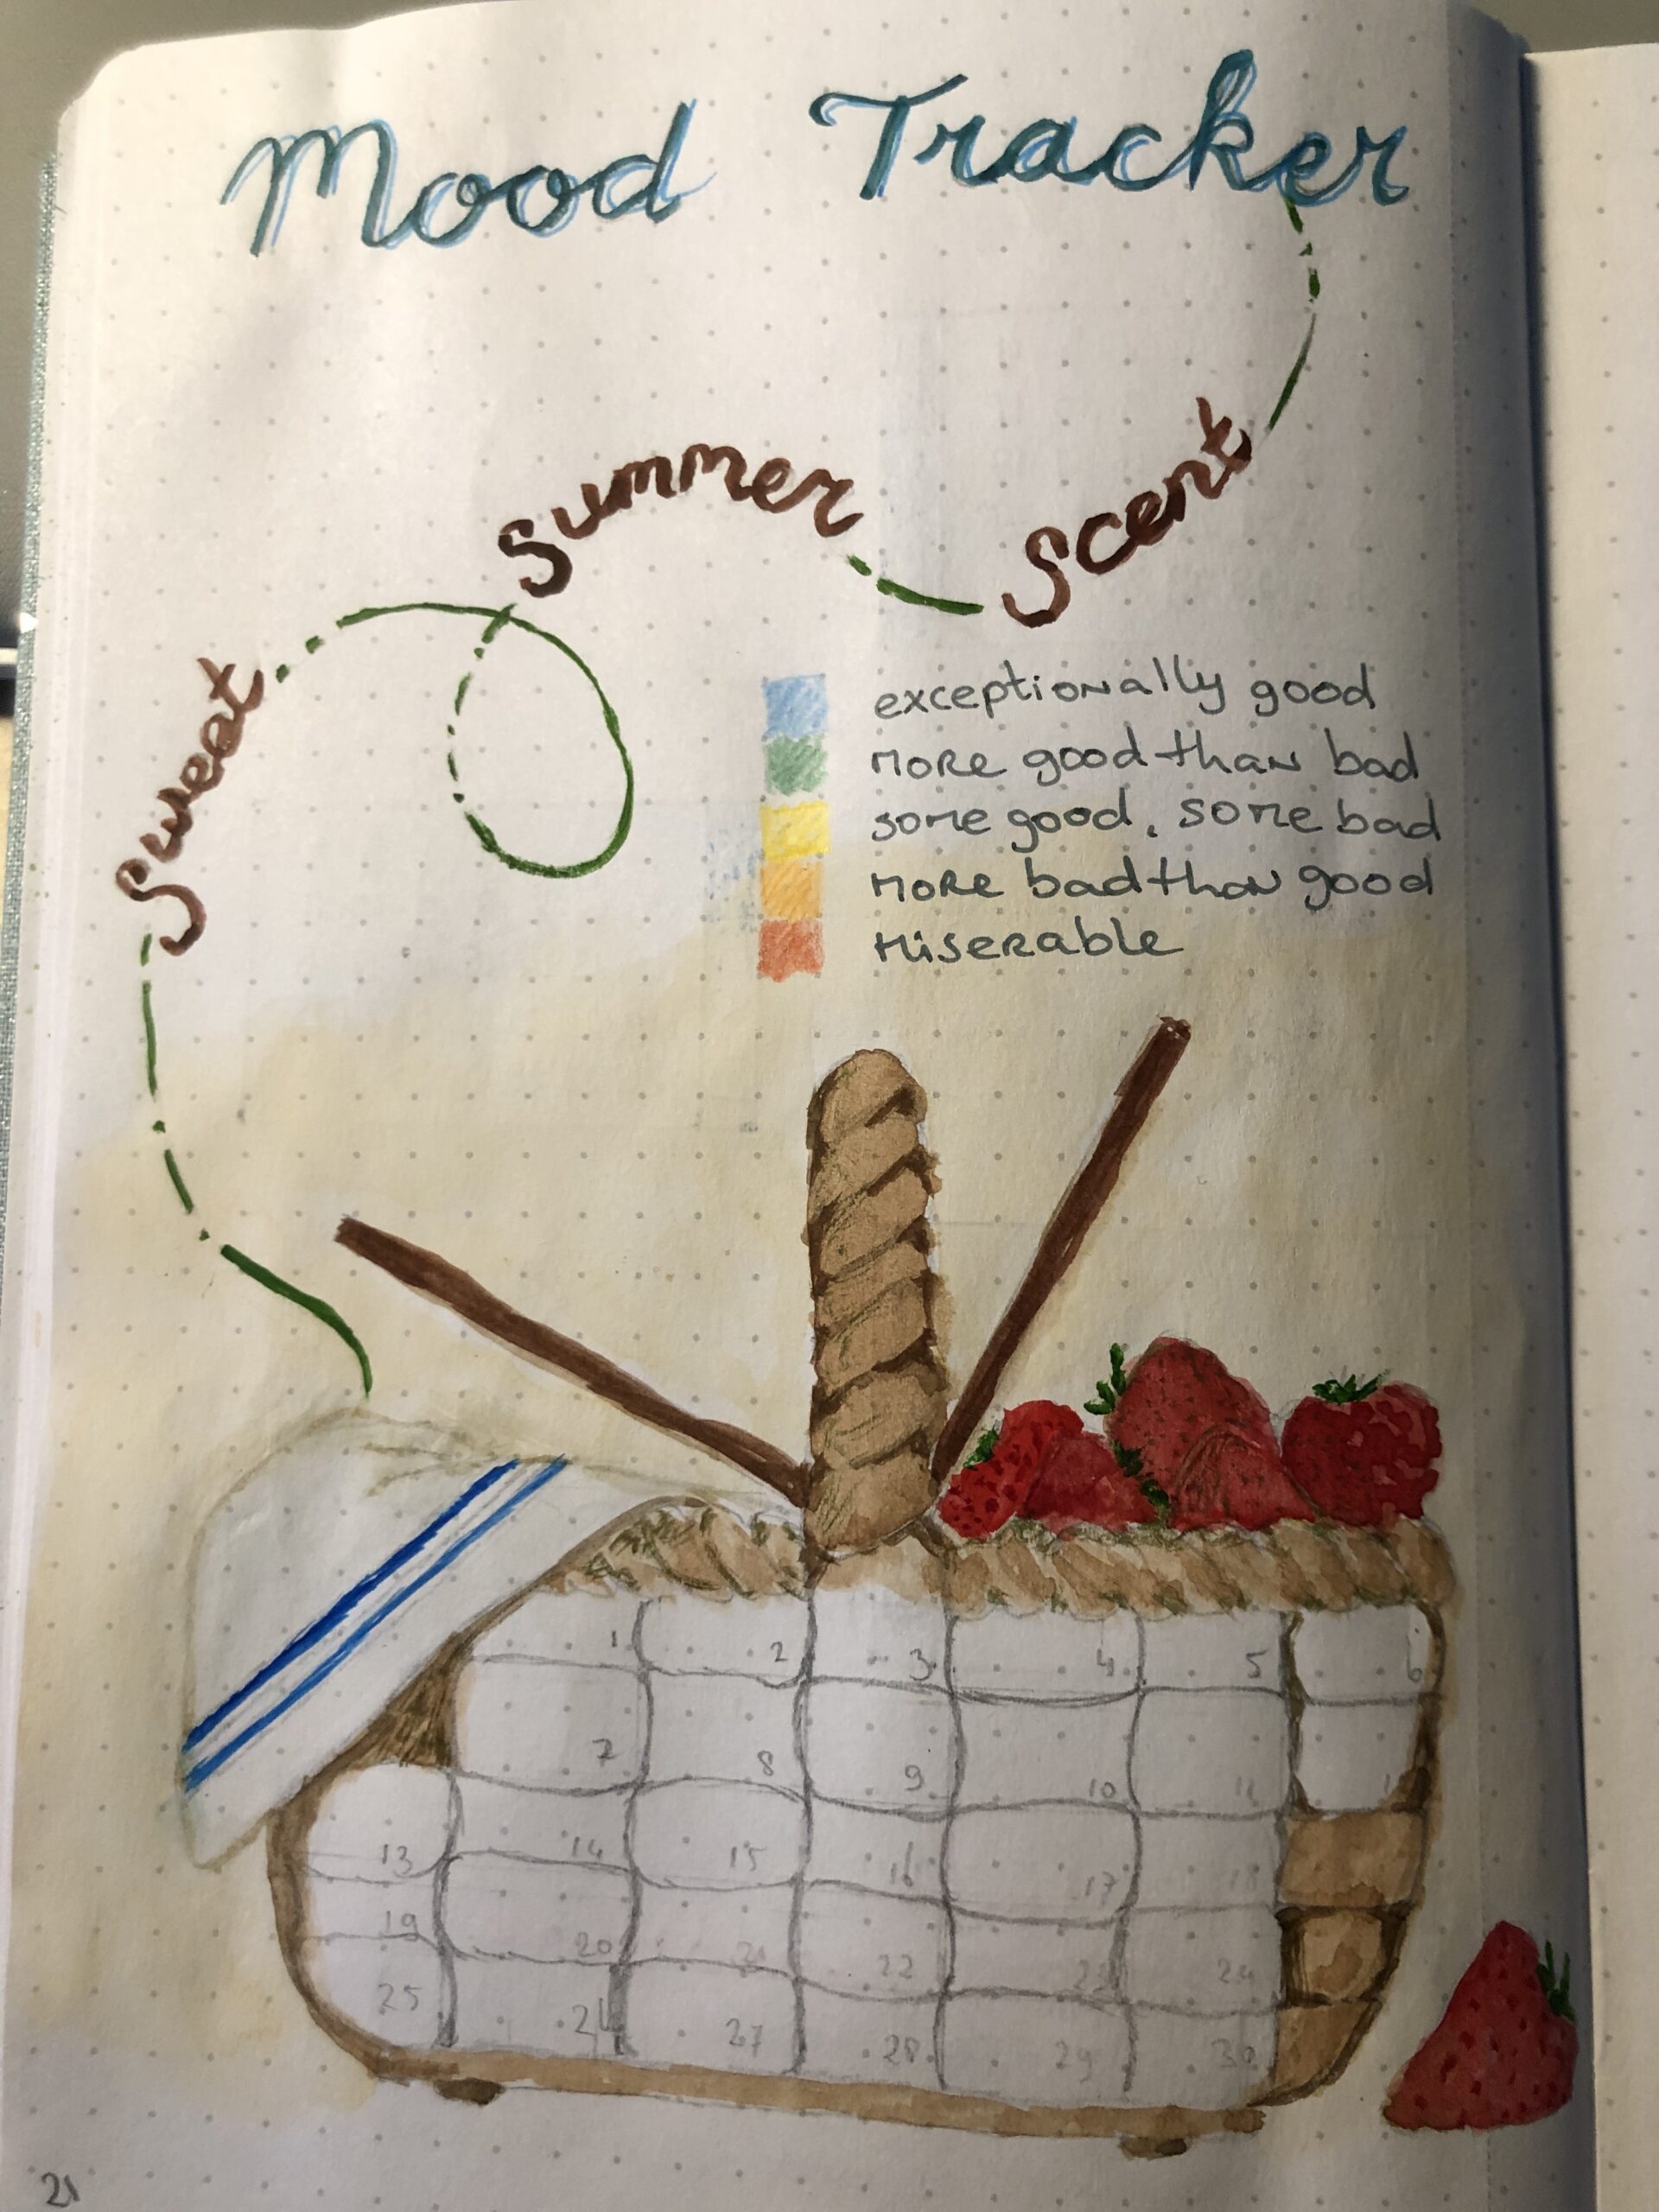 Mood Tracker
Sweat
Summer
Scent
exceptionally good
more good than bad
some good, some bad
more bad than good
miserable
1 2 3 4 5 6
7 8 9 10 11
13 14 15 16 17 18
19 20 21 22 23 24
25 27 28 29 30
21